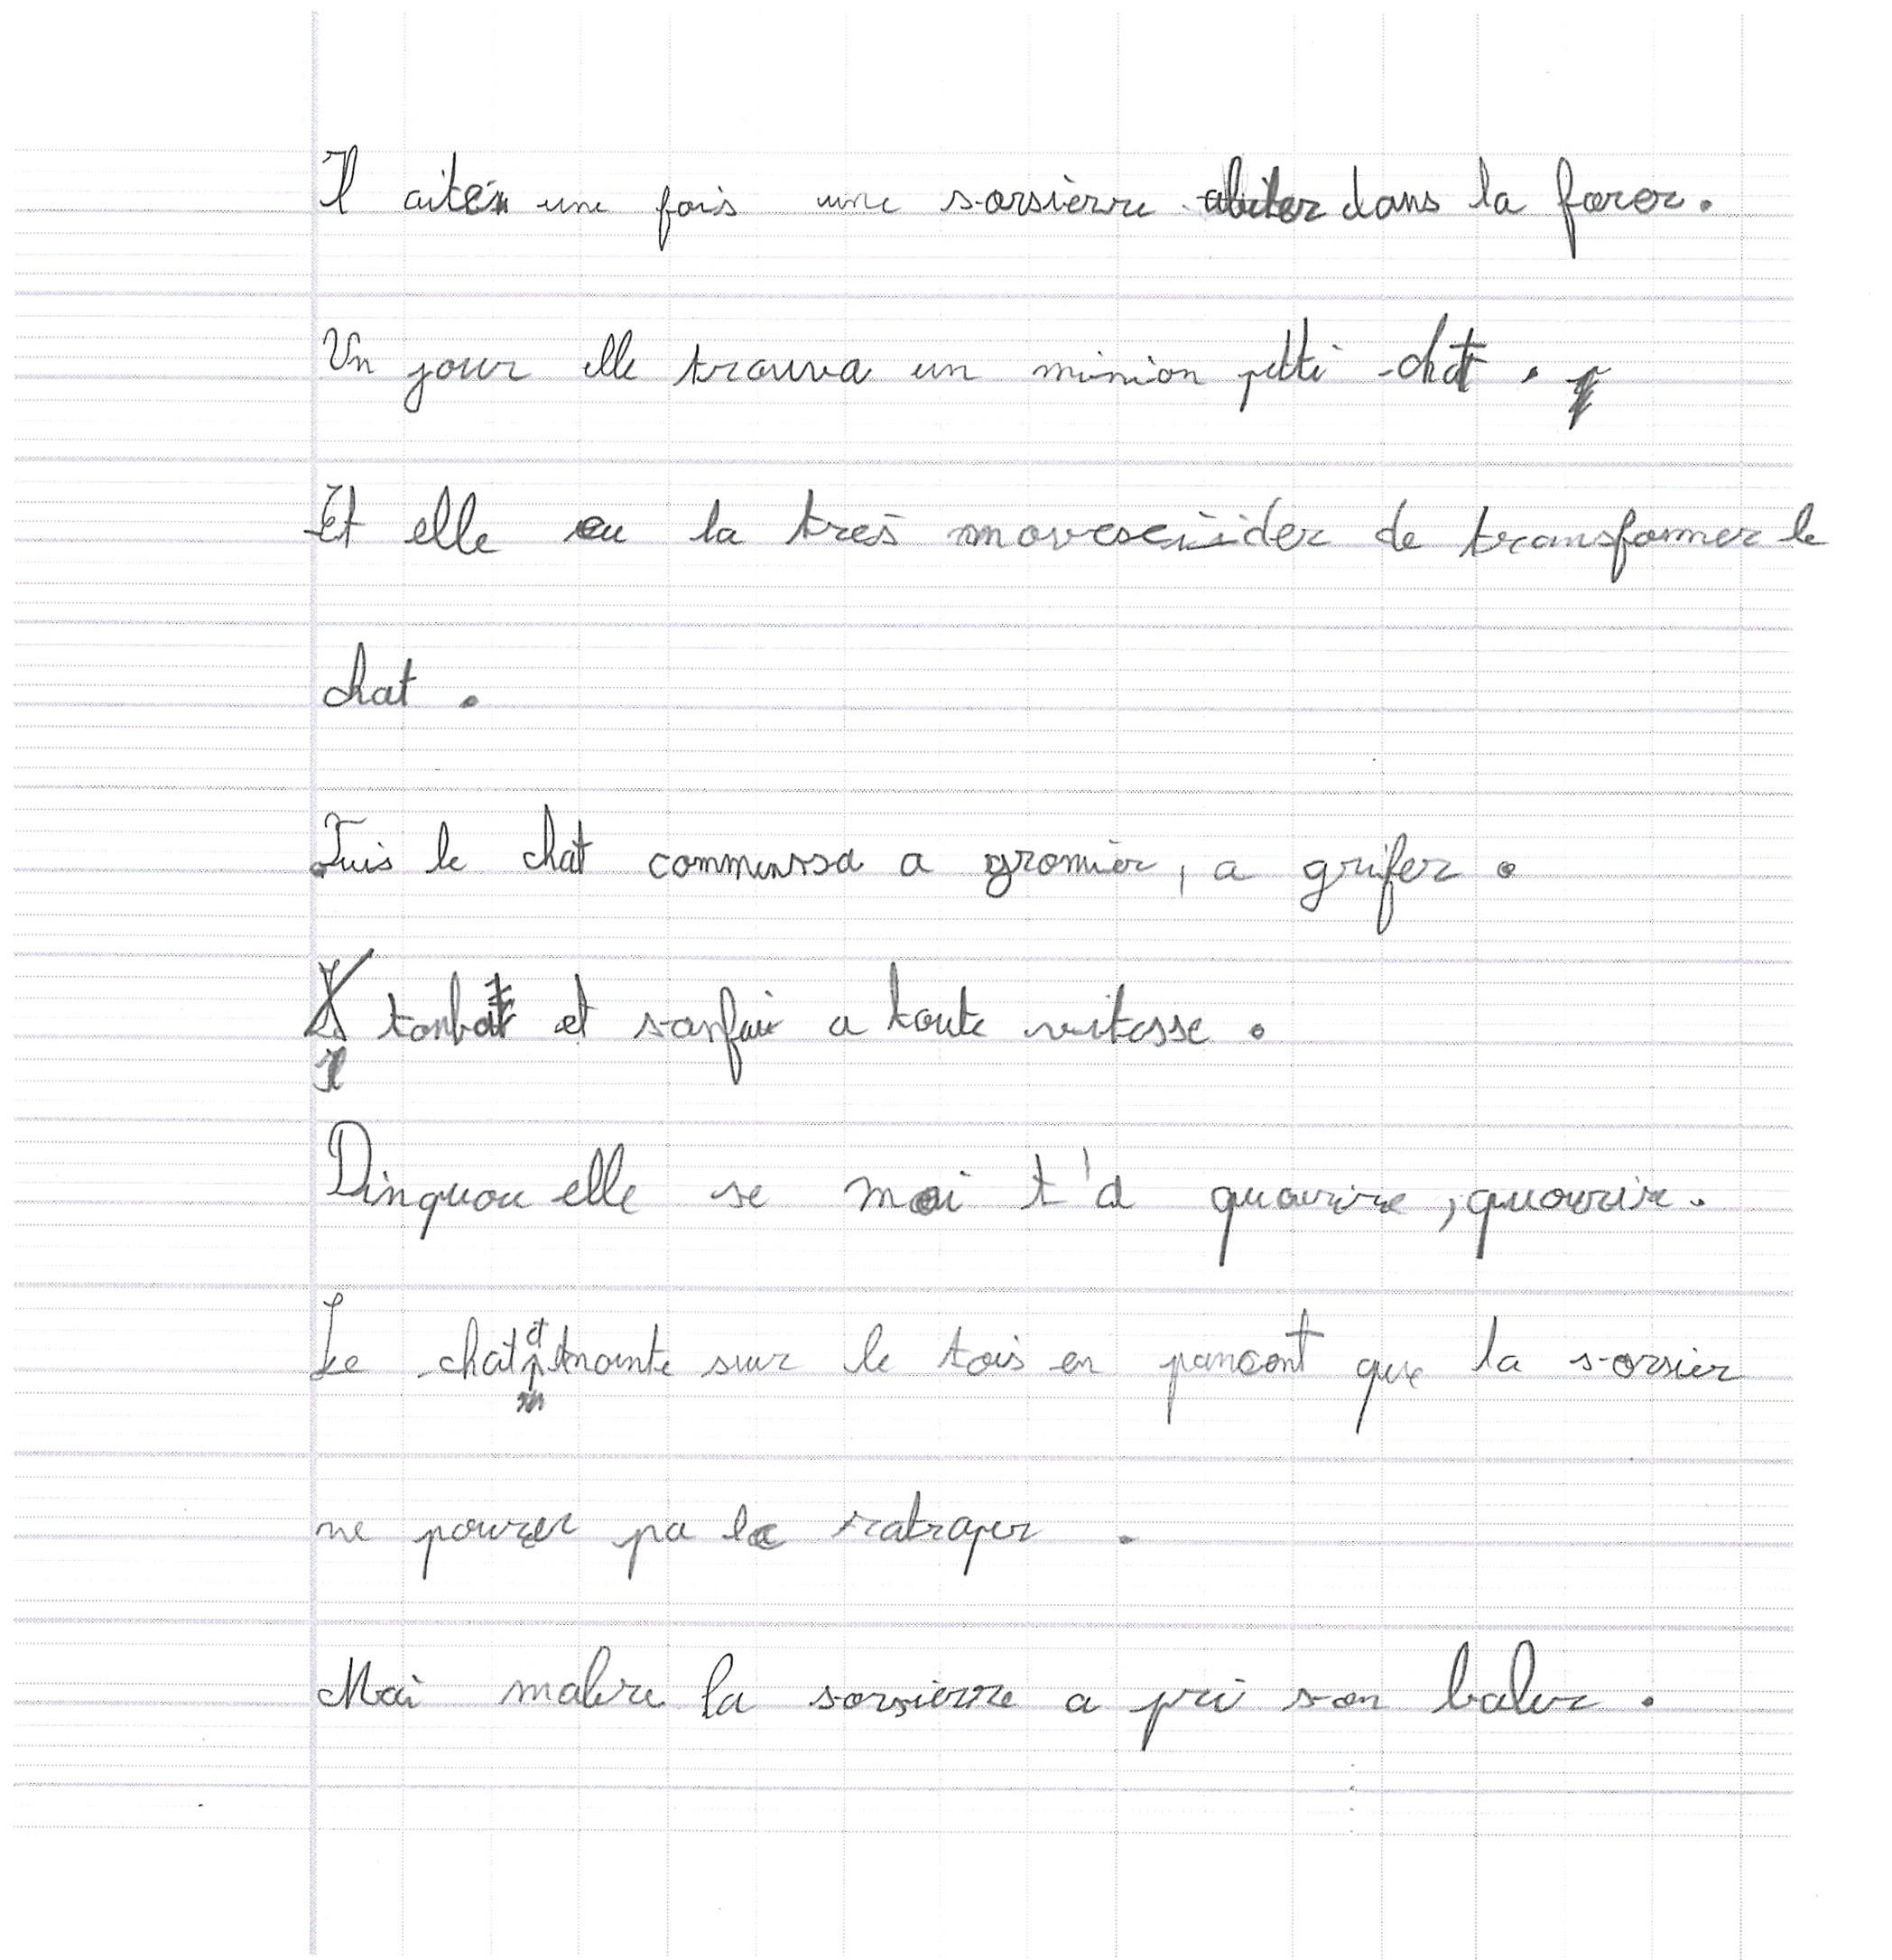 Il aitén une fois une sorsièrre abiter dans la foror.
Un jour elle trouva un minion petti chat.
Et elle eu la très moveseiider de transformer le
chat.
Puis le chat commenssa a gromier, a grifer.
Il tonba et sanfui a toute vitesse.
Dinquou elle se mai t'a quourire, quourir.
Le chat et monte sur le tois en pancant que la sorsier
ne pourer pa le ratraper.
Mai malere la sorsierre a pri son baler.